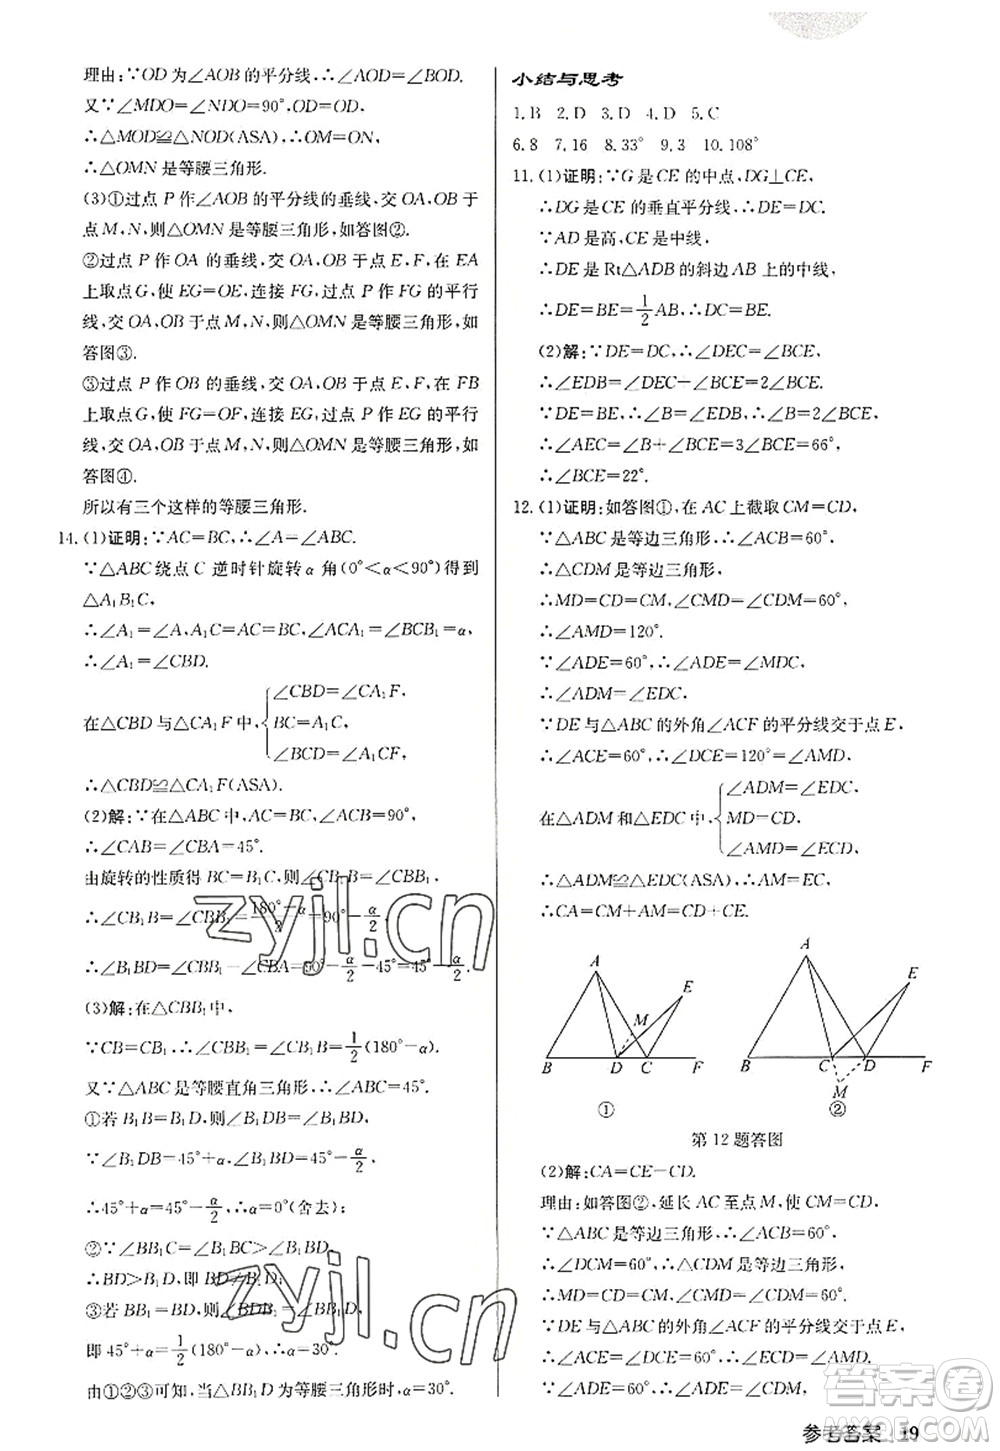 理由:∵OD 为∠AOB 的平分线,∴∠AOD=∠BOD.
又∵∠MDO=∠NDO=90°,OD=OD,
∴△MOD≌△NOD(ASA),∴OM=ON,
∴△OMN 是等腰三角形.
(3)①过点 P 作∠AOB 的平分线的垂线,交 OA,OB 于
点 M,N,则△OMN 是等腰三角形,如答图②.
②过点 P 作 OA 的垂线,交 OA,OB 于点 E,F,在 EA
上取点 G,使 EG=OE,连接 FG,过点 P 作 FG 的平行
线,交 OA,OB 于点 M,N,则△OMN 是等腰三角形,如
答图③.
③过点 P 作 OB 的垂线,交 OA,OB 于点 E,F,在 FB
上取点 G,使 FG=OF,连接 EG,过点 P 作 EG 的平行
线,交 OA,OB 于点 M,N,则△OMN 是等腰三角形,如
答图④.
所以有三个这样的等腰三角形.
14.(1)证明:∵AC=BC,∴∠A=∠ABC.
∵△ABC 绕点 C 逆时针旋转 α 角(0°<α<90°)得到
△A₁B₁C,
∴∠A₁=∠A,A₁C=AC=BC,∠ACA₁=∠BCB₁=α,
∴∠A₁=∠CBD.
在△CBD 与△CA₁F 中,{∠CBD=∠CA₁F,
BC=A₁C,
∠BCD=∠A₁CF,
∴△CBD≌△CA₁F(ASA).
(2)解:∵在△ABC 中,AC=BC,∠ACB=90°,
∴∠CAB=∠CBA=45°.
由旋转的性质得 BC=B₁C,则∠CB₁B=∠CBB₁,
∴∠CB₁B=∠CBB₁=(180°-α)/2=90°-α/2,
∴∠B₁BD=∠CBB₁-∠CBA=90°-α/2-45°=45°-α/2.
(3)解:在△CBB₁ 中,
∵CB=CB₁,∴∠CBB₁=∠CB₁B=1/2(180°-α).
又∵△ABC 是等腰直角三角形,∴∠ABC=45°.
①若 B₁B=B₁D,则∠B₁DB=∠B₁BD,
∵∠B₁DB=45°+α,∠B₁BD=45°-α/2,
∴45°+α=45°-α/2,∴α=0°(舍去);
②∵∠BB₁C=∠B₁BC>∠B₁BD,
∴BD>B₁D,即 BD≠B₁D;
③若 BB₁=BD,则∠BDB₁=∠BB₁D,
即 45°+α=1/2(180°-α),∴α=30°.
由①②③可知,当△BB₁D 为等腰三角形时,α=30°.
小结与思考
1.B 2.D 3.D 4.D 5.C
6.8 7.16 8.33° 9.3 10.108°
11.(1)证明:∵G 是 CE 的中点,DG⊥CE,
∴DG 是 CE 的垂直平分线,∴DE=DC.
∵AD 是高,CE 是中线,
∴DE 是 Rt△ADB 的斜边 AB 上的中线,
∴DE=BE=1/2AB,∴DC=BE.
(2)解:∵DE=DC,∴∠DEC=∠BCE,
∴∠EDB=∠DEC+∠BCE=2∠BCE.
∵DE=BE,∴∠B=∠EDB,∴∠B=2∠BCE,
∴∠AEC=∠B+∠BCE=3∠BCE=66°,
∴∠BCE=22°.
12.(1)证明:如答图①,在 AC 上截取 CM=CD,
∵△ABC 是等边三角形,∴∠ACB=60°,
∴△CDM 是等边三角形,
∴MD=CD=CM,∠CMD=∠CDM=60°,
∴∠AMD=120°.
∵∠ADE=60°,∴∠ADE=∠MDC,
∴∠ADM=∠EDC.
∵DE 与△ABC 的外角∠ACF 的平分线交于点 E,
∴∠ACE=60°,∴∠DCE=120°=∠AMD.
在△ADM 和△EDC 中,{∠ADM=∠EDC,
MD=CD,
∠AMD=∠DCE,
∴△ADM≌△EDC(ASA),∴AM=EC,
∴CA=CM+AM=CD+CE.
A E M B D C F
①
A E B C D F M
②
第 12 题答图
(2)解:CA=CE-CD.
理由:如答图②,延长 AC 至点 M,使 CM=CD,
∵△ABC 是等边三角形,∴∠ACB=60°,
∴∠DCM=60°,∴△CDM 是等边三角形,
∴MD=CD=CM,∠CMD=∠CDM=60°.
∵DE 与△ABC 的外角∠ACF 的平分线交于点 E,
∴∠ACE=∠DCE=60°,∴∠ECD=∠AMD.
∵∠ADE=60°,∴∠ADE=∠CDM,
参考答案 19
zyjl.cn
zyjl.cn
答案圈
MXQE.COM